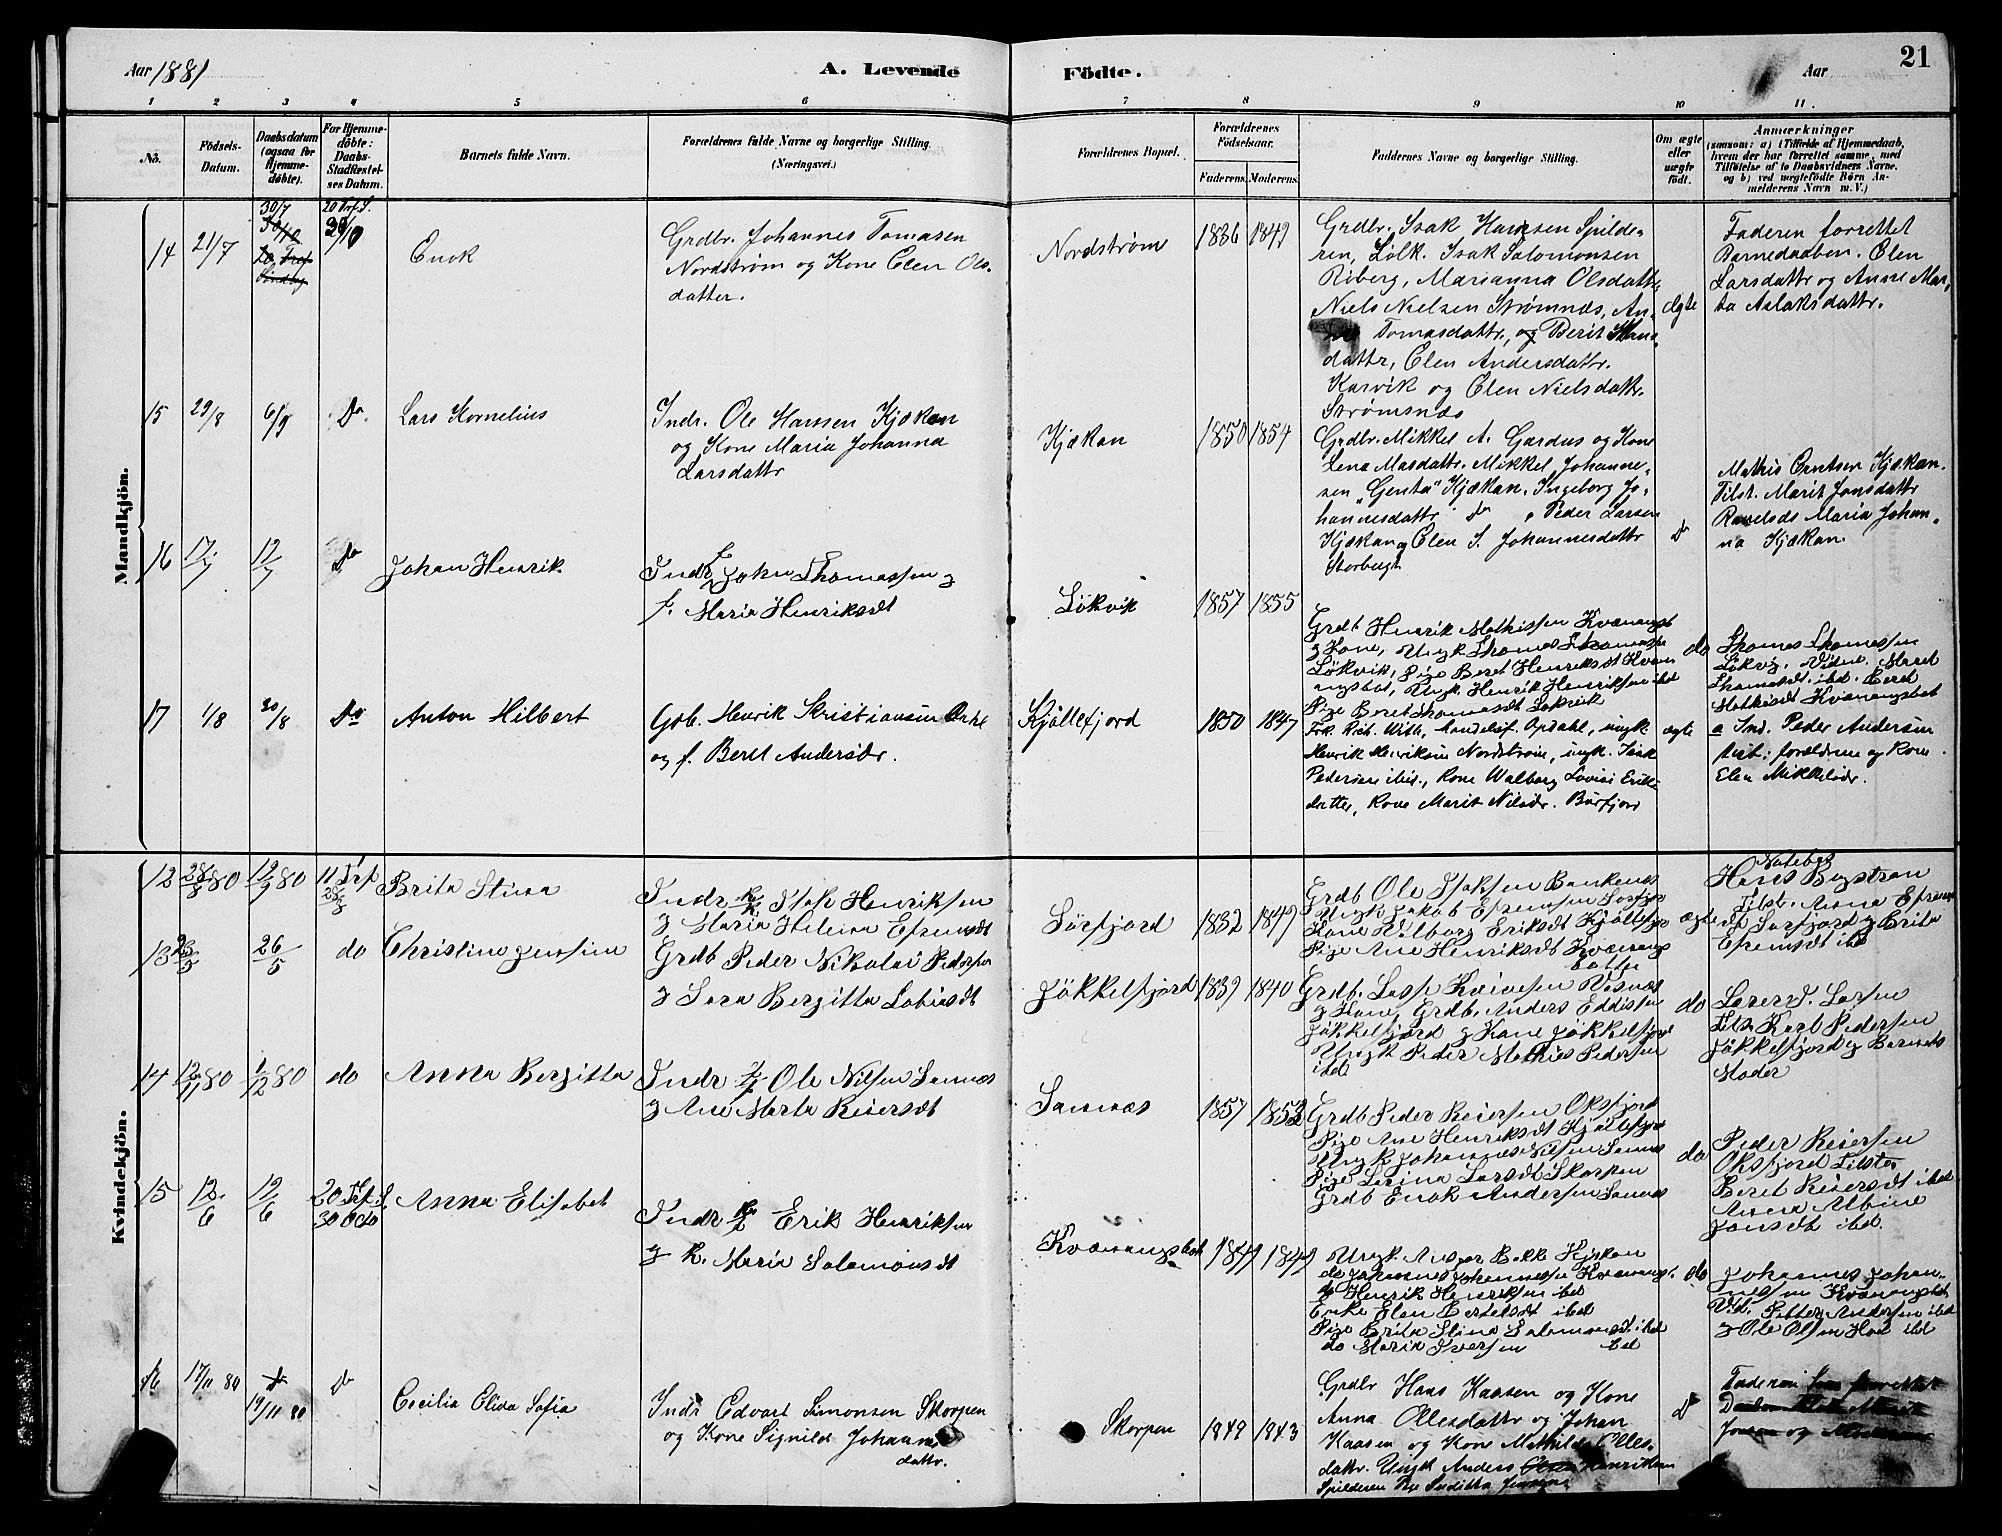 Aar 1881
A. Levende Födte.
Aar
21
1 2 3 4 5 6 7 8 9 10 11.
No.
Födsels-Datum.
Daabsdatum (ogsaa for Hjemme-döbte).
For Hjemme-döbte: Daabs-Stadfæstel-ses Datum.
Barnets fulde Navn.
Forældrenes fulde Navne og borgerlige Stilling. (Næringsvei.)
Forældrenes Bopæl.
Forældrenes Födselsaar.
Faderens. Moderens.
Faddernes Navne og borgerlige Stilling.
Om ægte eller uægte födt.
Anmærkninger
(saasom: a) i Tilfælde af Hjemmedaab, hvem der har forrettet samme, med Tilföielse af to Daabsvidners Navne, og b) ved uægtefödte Börn An-melderens Navn m. V.)
Mandkjön.
14 21/7 30/7 Enok
Grdbr. Johannes Tomasen
Nordstrøm og Kone Elen Ols-
datter.
Nordstrøm 1836 1849
Grdbr. Isak Hansen Spilde-
ren, Lølk. Isak Salomonsen
Røberg, Marianna Olsdattr,
Niels Nielsen Strømnæs, An-
Tomasdattr, og Berit Hans-
dattr, Elen Andersdattr.
Karvik og Elen Nielsdattr.
Strømsnæs
ægte
Faderen forrettet
Barnedaaben. Elen
Larsdattr og Anne Mar-
ta Aslaksdattr.
15 29/8 6/9 Do Lars Kornelius
Indr. Ole Hansen Kjækan
og Kone Maria Johanna
Larsdattr
Kjækan 1850 1854
Grdbr. Mikkel A. Gardus og Kone
Lena Masdattr. Mikkel Johanne-
sen "Genta" Kjækan, Ingeborg Jo-
hannesdattr do, Peder Larsen
Kjækan og Elen S. Johannesdattr
Storbugt
Do
Mathis Arntsen Kjækan.
Tilst. Marit Jonsdattr
Maria Johan-
na Kjækan
16 17/7 Do Johan Henrik
Indr John Thomassen og
f. Maria Henriksdt
Løkvik 1857 1855
Grdb Henrik Mathissen Kvænangsb
og Kone, Ungk Thomas Thomassen
Løkvik, Pige Beret Henriksdt Kvæn
angsbot, Ungk Henrik Henriksen ibd
Pige Beret Thomasdt Løkvik
do
Thomas Thomassen
Løkvig. Vidne. Maret
Thomasdt ibd. Beret
Mathisdt Kvænangsbot
17 1/8 20/8 Do Anton Hilbert
Gbr. Henrik Kristiansen
og f. Beret Andersdr.
Kjøllefjord 1850 1847
Frk. Rich. With, Handelsf. Opdahl, ungk.
Henrik Henriksen Nordstrøm, ungk. Isak
Pedersen ibid., Kone Walborg Lovise Eriks
datter, Kone Marit Nilsdr. Burfjord
ægte
a Ind. Peder Andersen
forældrene og Kone
Elen Mikkelsdr.
Kvindekjön.
12 28/8 80 12/9 80 Brita Stina
Indr Isak Henriksen
og Maria Helena Efremsdt
Sørfjord 1832 1849
Grdb Ole Isaksen Bankenæs
Ungk Jakob Efremsen Sørfjor
Kone Vilborg Eriksdt Kjøllefjor
Pige Ane Henriksdt Kvænangs
botn
ægte
Notebas
Hans Bystrøm
Tilst. Anna Efrems
dt Sørfjord og Brita
Efremsdt ibd
13 26/5 do Christine Jensine
Grdb Peder Nikolai Pedersen
og Sara Bergitta Tobiasdt
Jøkkelfjord 1839 1840
og Kone, Grdb. Anders Eddissen
Jøkkelfjord og Kone Jøkkelfjord
Ungk Peder Mathias Pedersen
ibd
do
Larsen
Tilst. Karl Pedersen
Jøkkelfjord og Barnets
Moder
14 12/11 80 1/12 80 do Anna Bergitta
Indr Ole Nilsen Sannæs
og Ane Marta Reiersdt
Sannæs 1857
Grdb Peder Reiersen Oksfjord
Pige Ane Henriksdt Kjøllefjord
Ungk Johannes Nilsen Sannæs
Pige Larina Larsdt Skorpen
Grdb Enok Andersen Sannæs
do
Peder Reiersen
Oksfjord Tilst.
Beret Reiersdt ibd
Anna Albine
Jonsdt ibd.
15 12/6 19/6 Anna Elisabet
Indr Erik Henriksen
og K. Maria Salomonsdt
Kvænangsbot 1849
Ungk. Bakke Kjækan
do Johannes Johannessen Kvænangsb.
Henrik Henriksen ibd
Enke Elen Bertelsdt ibd
Pige Brita Stina Salomonsdt ibd
do Maria Iversen ibd
do
Johannes Johan-
nessen Kvænangsbot
Vid. Petter Andersen ibd
og Ole Olsen ibd
16 17/11 80 19/11 80 Do Cecilia Elida Sofia
Indr Edvart Simonsen Skorpen
og Kone Signild Johanns
dattr.
Skorpen 1849 1843
Grdbr Hans Kaasen og Kone
Anna Ollesdattr og Johan
Kaasen og Kone Mathilde Olles-
dattr. Ungk Anders Henriksen
Spilderen Pige Juditta Jensen
Do
Faderen har forrettet